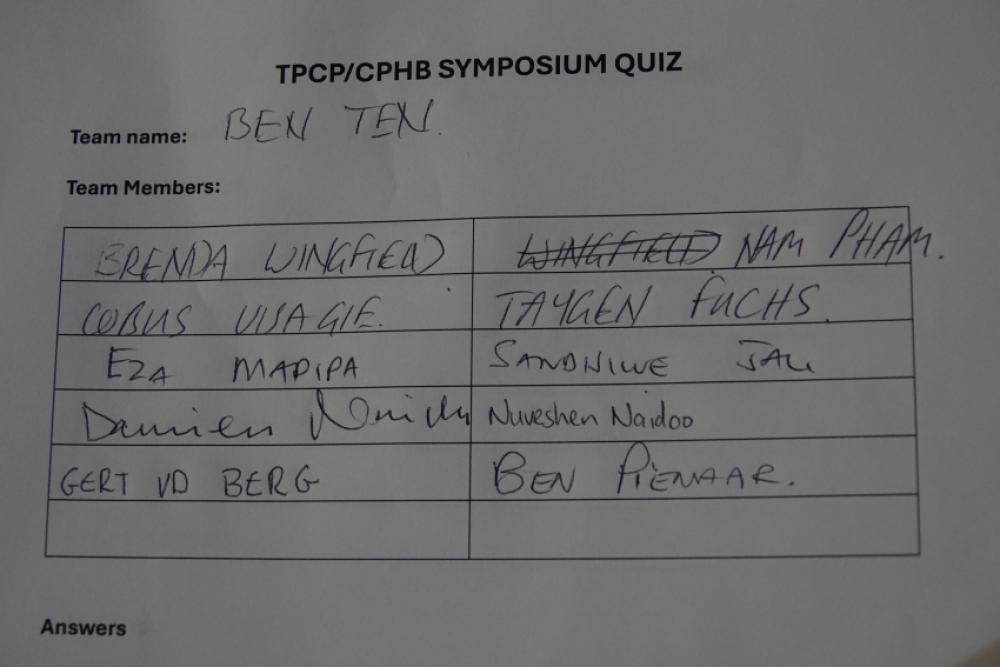 TPCP/CPHB SYMPOSIUM QUIZ
Team name: BEN TEN.
Team Members:
BRENDA WINGFIELD WINGFIELD NAM PHAM.
COBUS VISAGIE. TAYGEN FUCHS.
EZA MADIPA SANDNIWE JALI
Damien Nuveshen Naidoo
GERT VD BERG BEN PIENAAR.
Answers